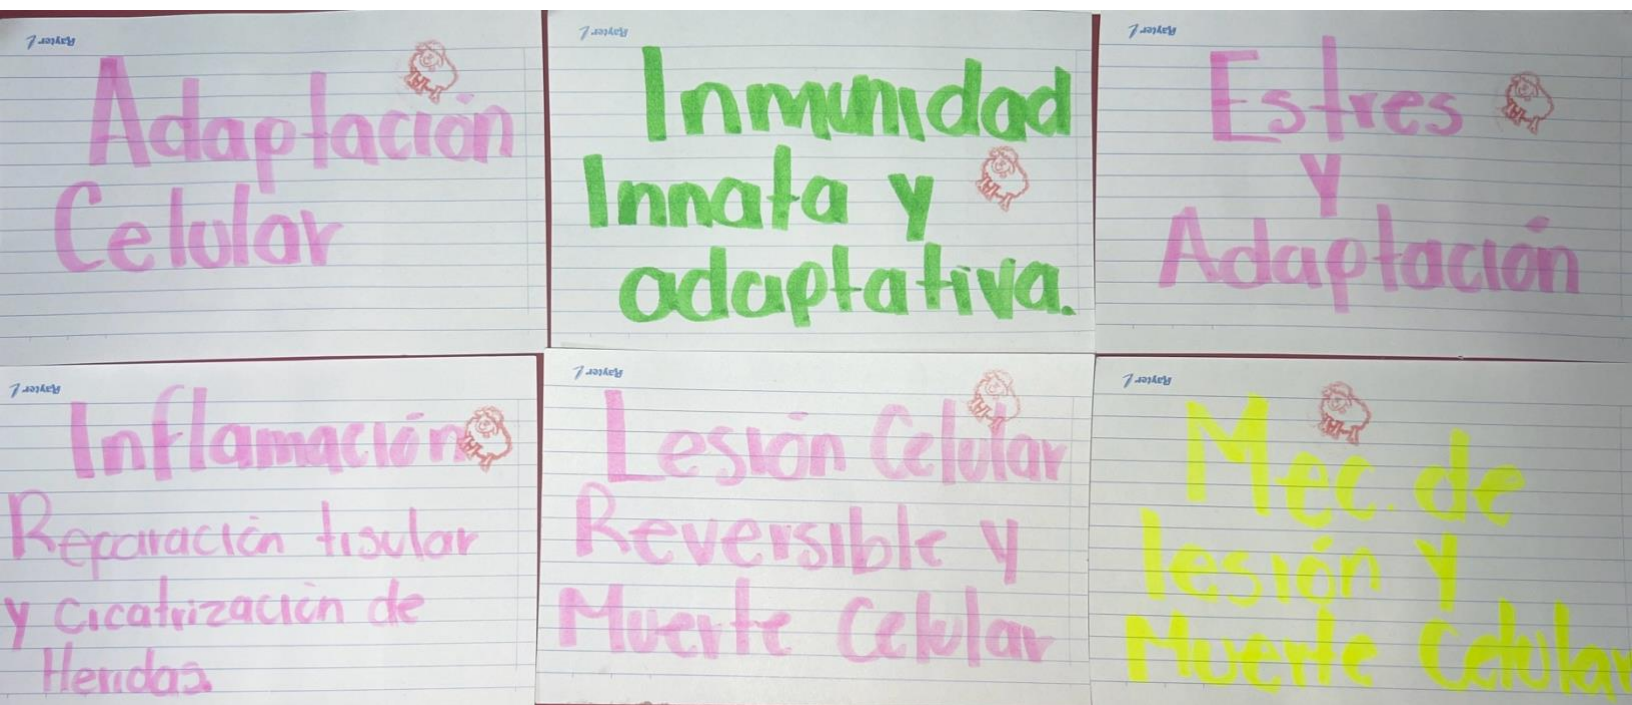 Rayter
Adaptación
Celular
Rayter
Inmunidad
Innata y
adaptativa.
Rayter
Estres
Y
Adaptación
Rayter
Inflamación
Reparación tisular
y Cicatrización de
Heridas.
Rayter
Lesión Celular
Reversible y
Muerte Celular
Rayter
Mec. de
lesión y
Muerte Celular